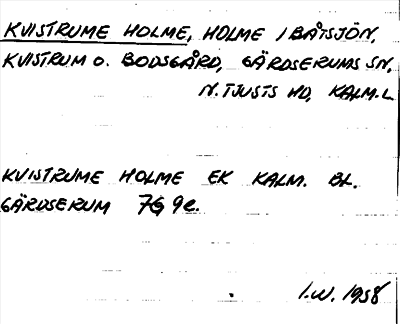 KVISTRUME HOLME, HOLME I BÅTSJÖN,
KVISTRUM O. BODSGÅRD, GÄRDSERUMS SN,
N. TJUSTS HD, KALM. L.
KVISTRUME HOLME EK KALM. BL.
GÄRDSERUM 7G 9e.
I.W. 1958